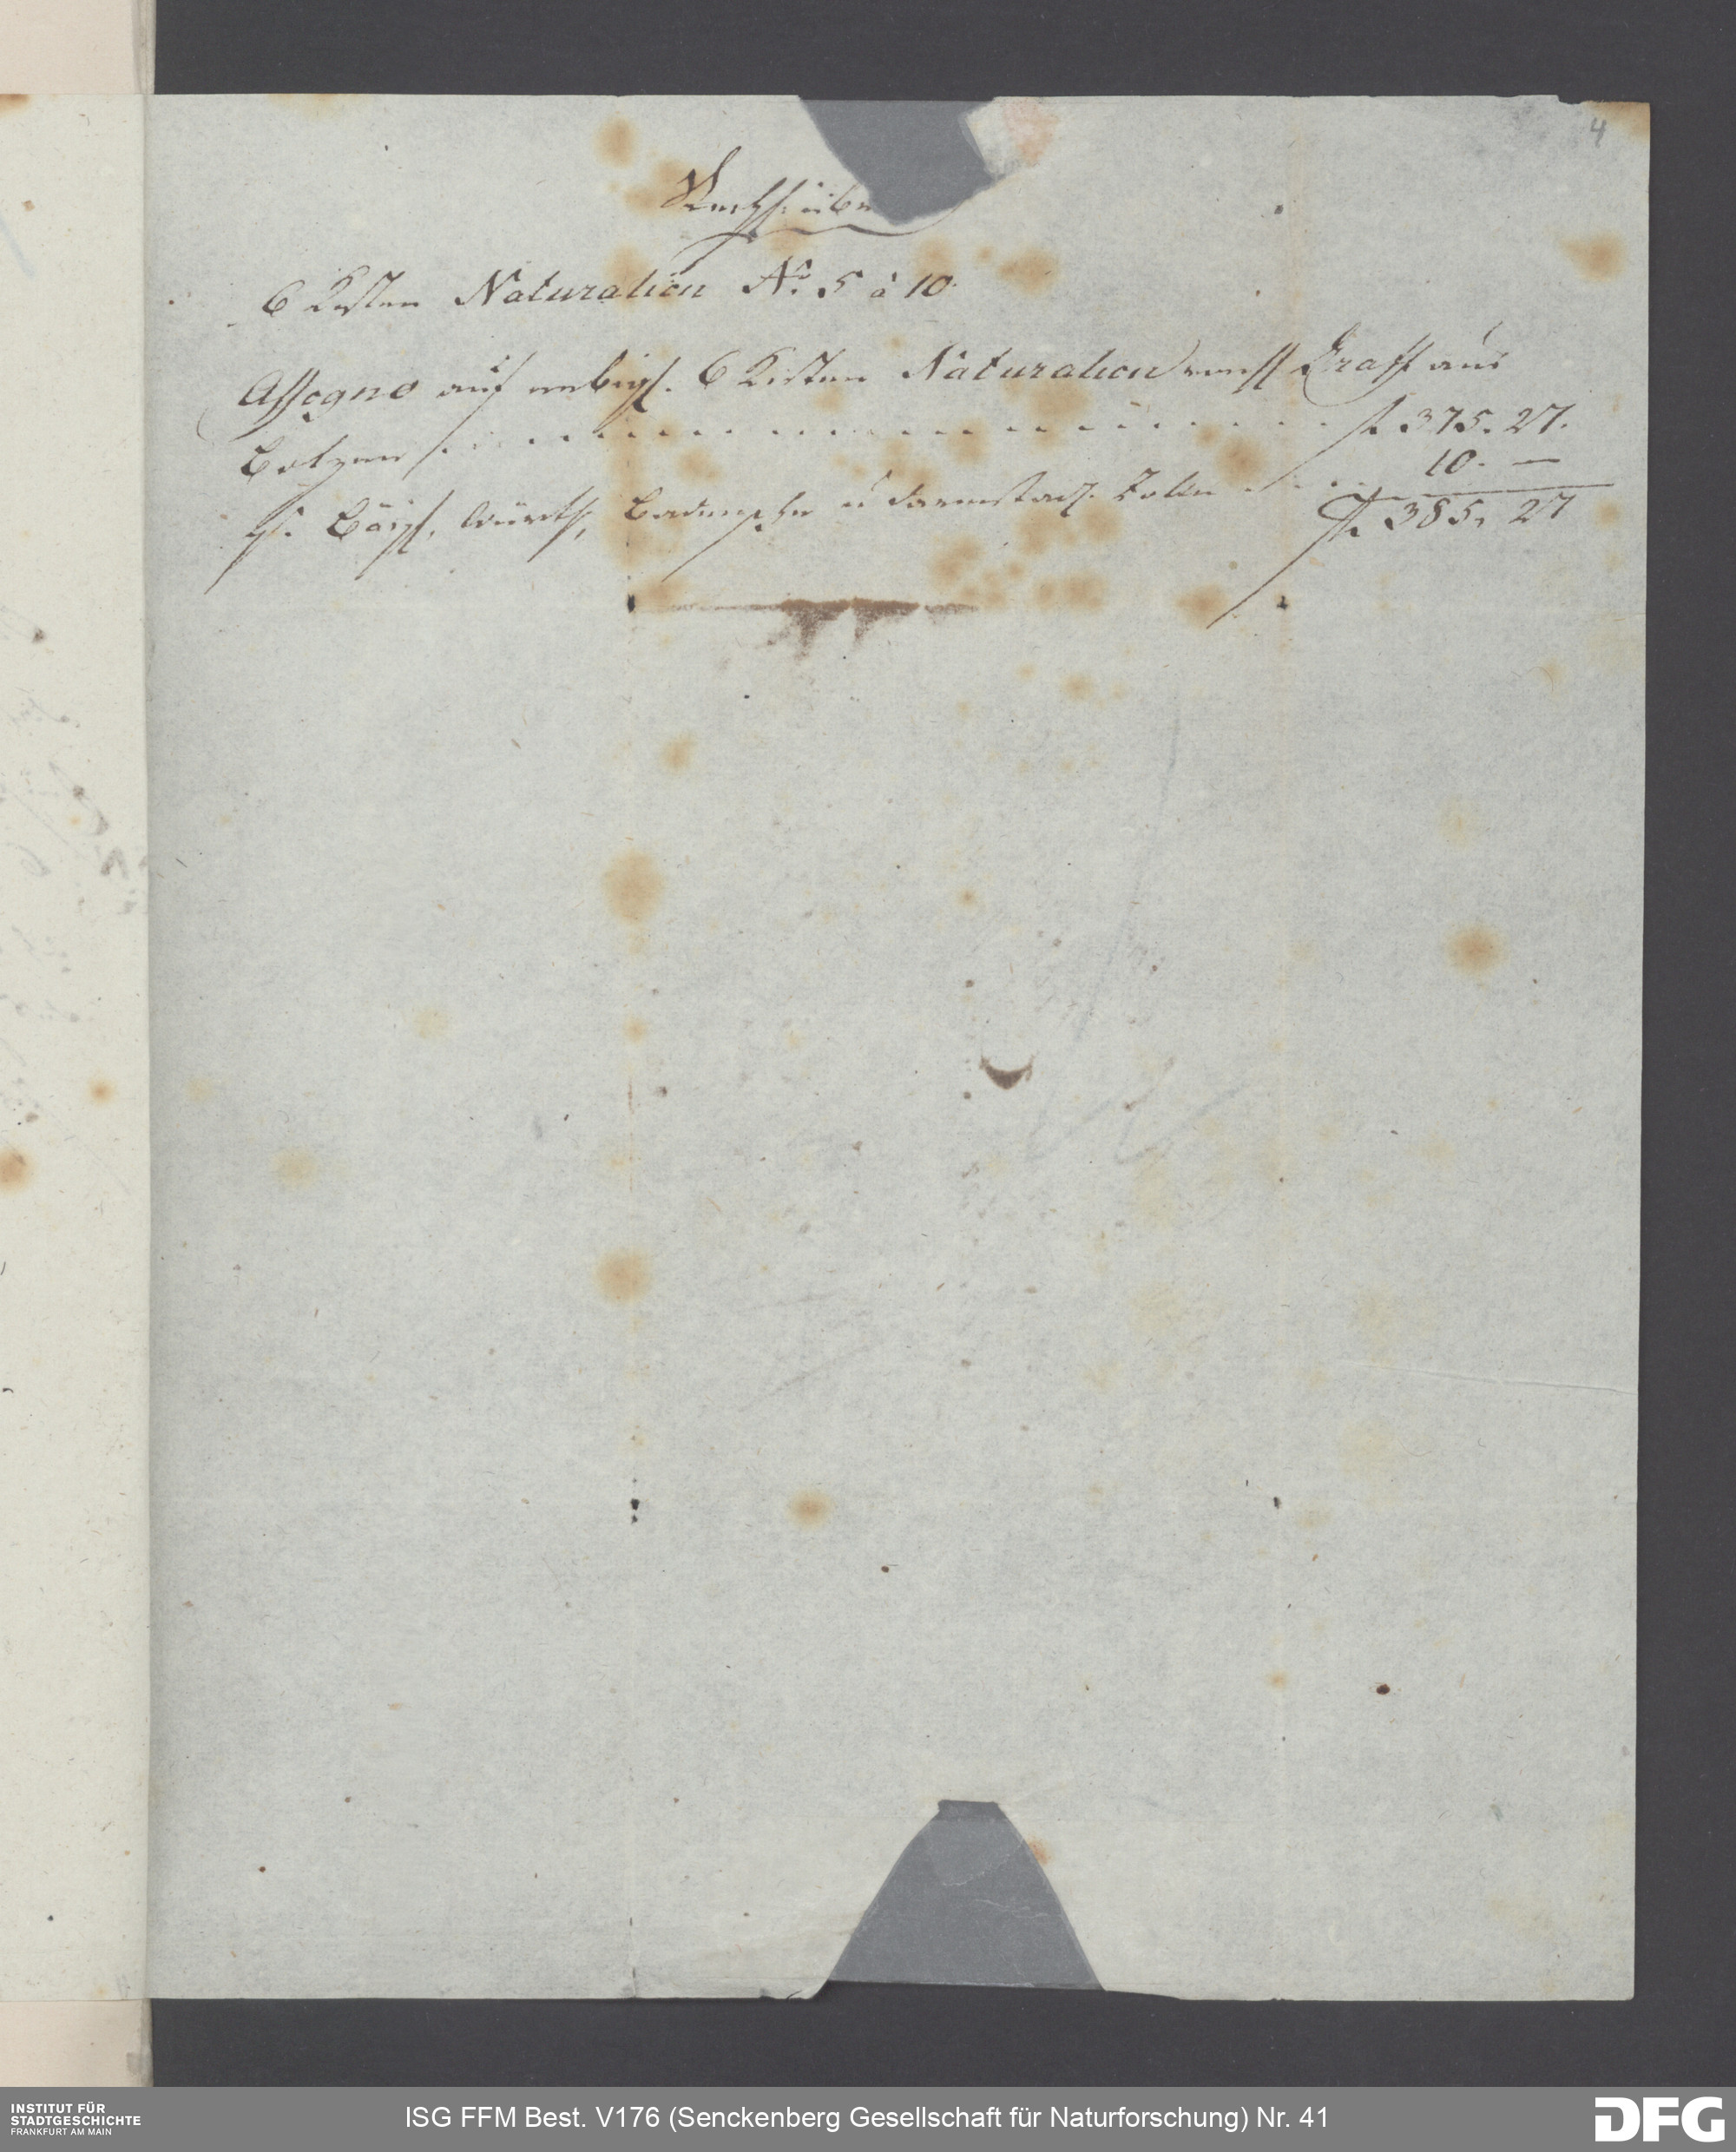 4
6 Kisten Naturalien No. 5 à 10.
Assegno auf 6 Kisten Naturalien Graff aus
Botzen f 375. 27.
Bäÿ. Würt. u Darmstad. Zolle 10. —
f 385. 27
INSTITUT FÜR
STADTGESCHICHTE
FRANKFURT AM MAIN
ISG FFM Best. V176 (Senckenberg Gesellschaft für Naturforschung) Nr. 41
DFG